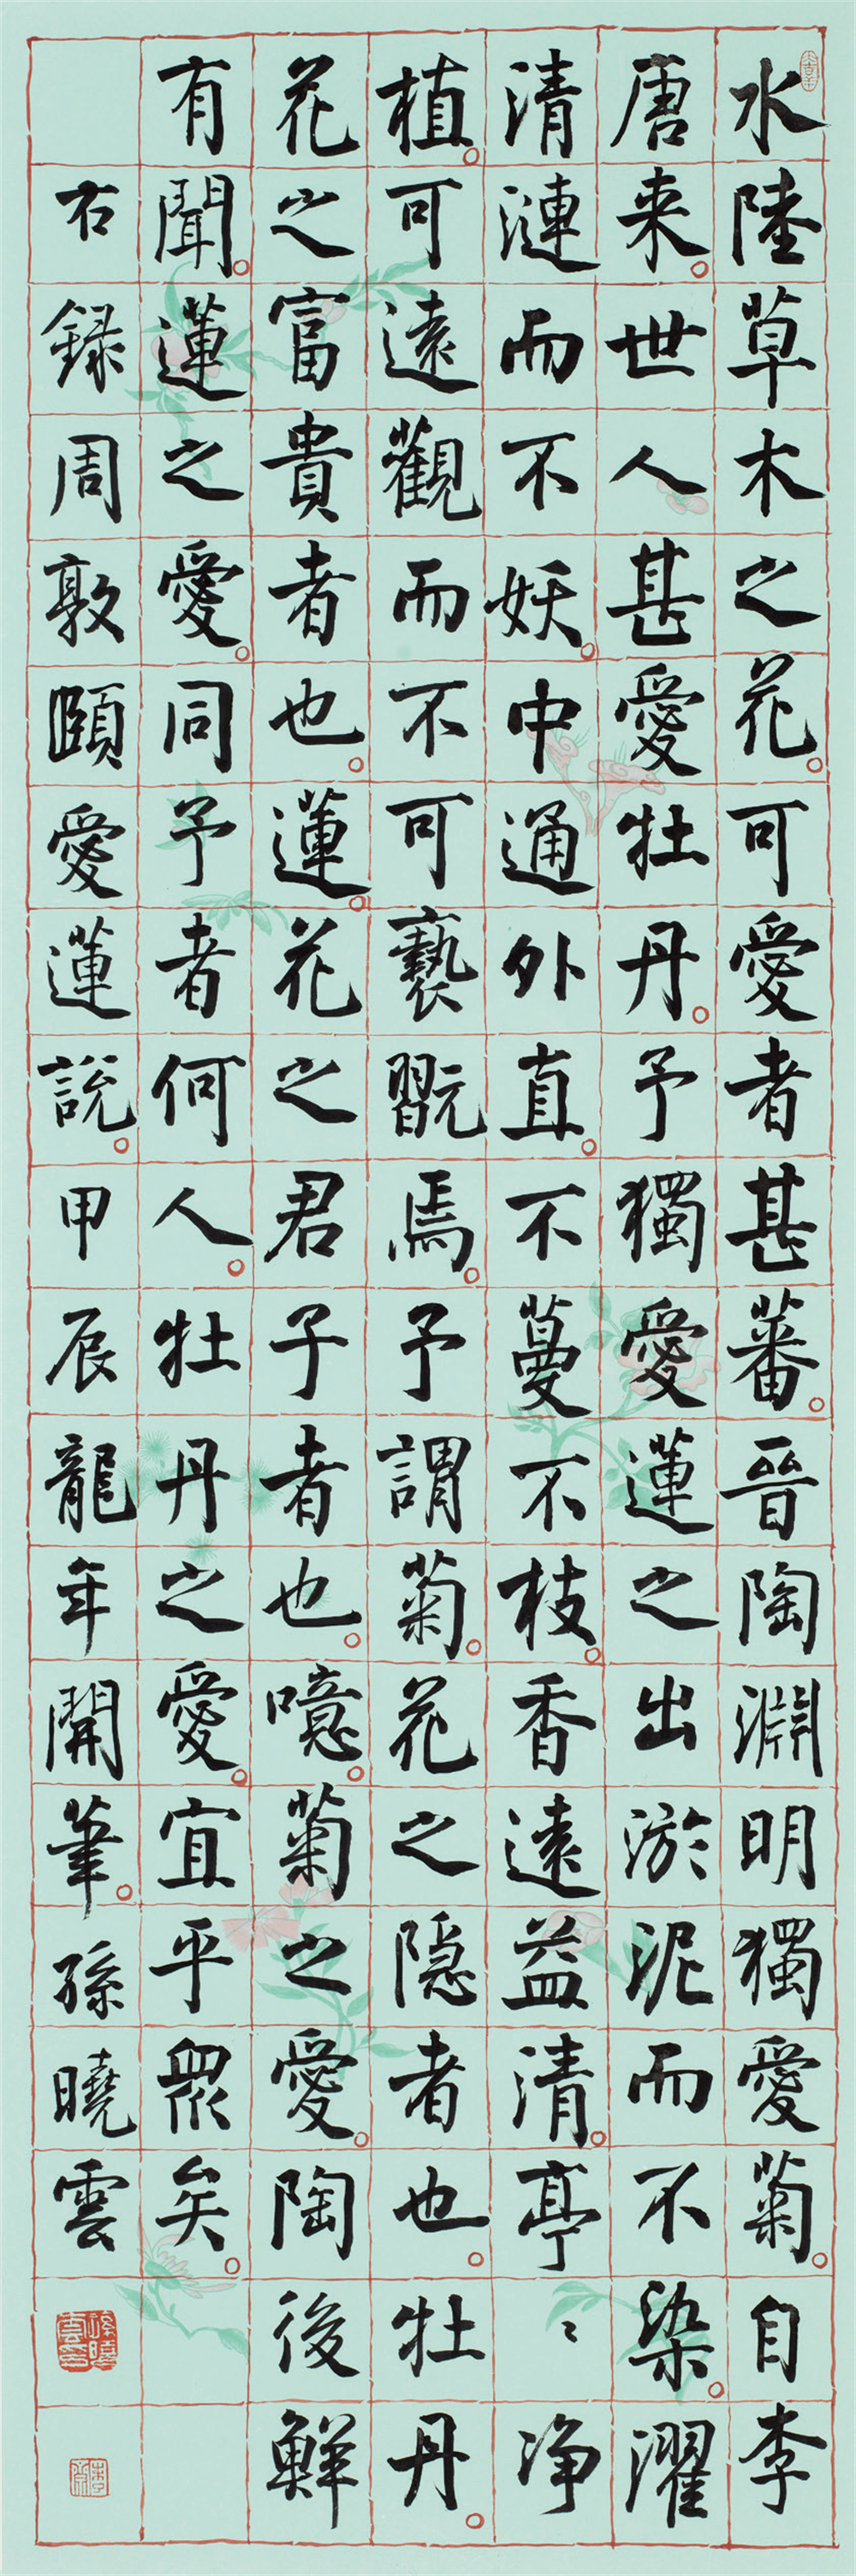 水陸草木之花。可愛者甚蕃。晉陶淵明獨愛菊。自李
唐来。世人甚愛牡丹。予獨愛蓮之出淤泥而不染。濯
清漣而不妖。中通外直。不蔓不枝。香遠益清。亭〻净
植。可遠觀而不可褻翫焉。予謂菊。花之隱者也。牡丹。
花之富貴者也。蓮。花之君子者也。噫。菊之愛。陶後鮮
有聞。蓮之愛。同予者何人。牡丹之愛。宜乎眾矣。
右録周敦頤愛蓮說。甲辰龍年開筆。孫曉雲